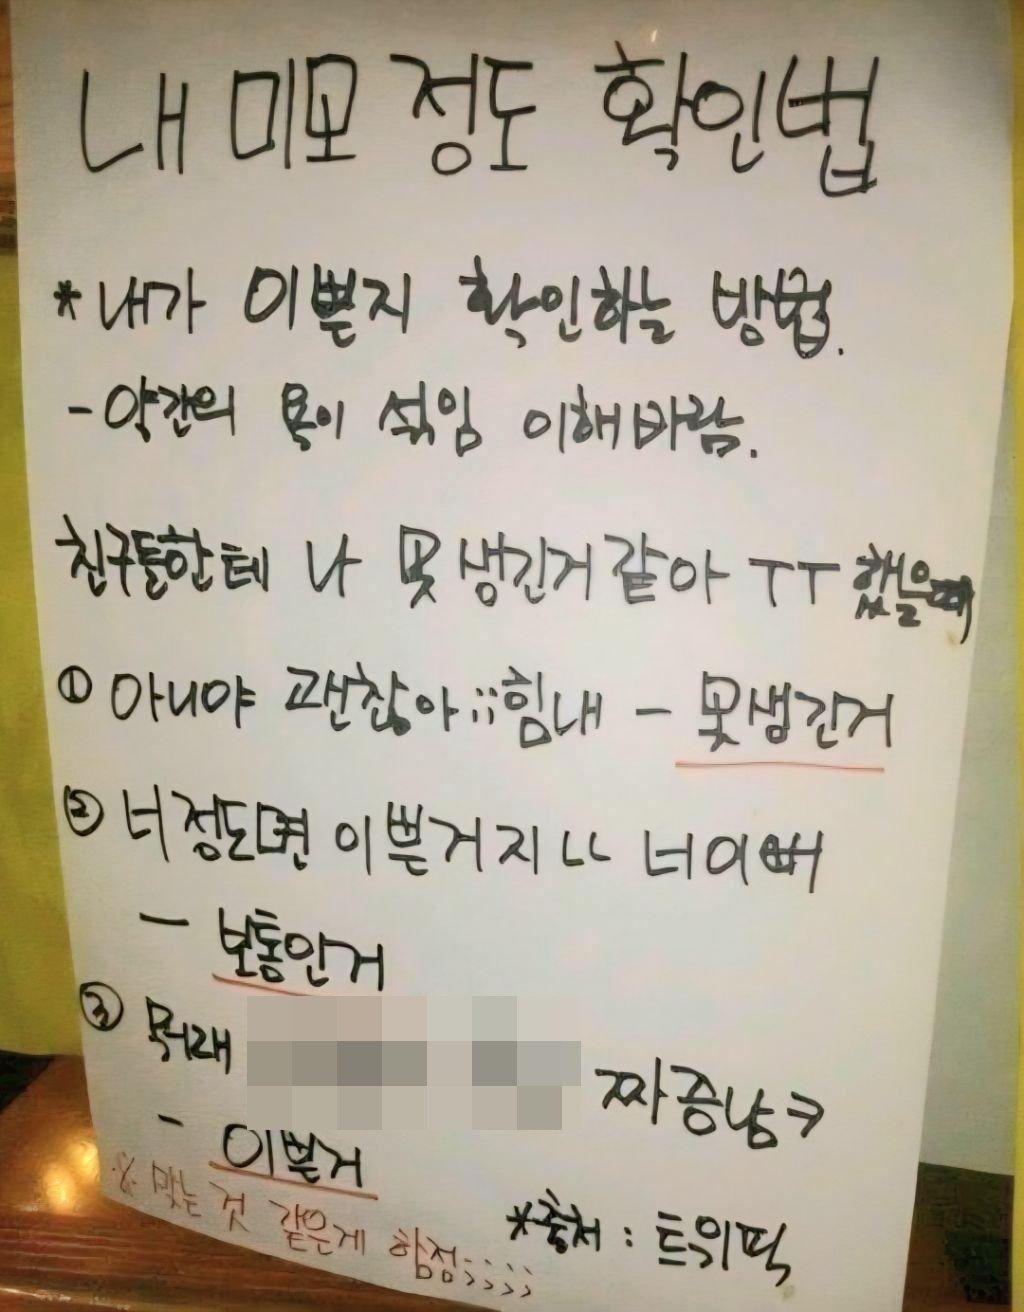 내 미모 정도 확인법
* 내가 이쁜지 확인하는 방법.
- 약간의 욕이 섞임 이해바람.
친구들한테 나 못생긴거같아 ㅜㅜ 했을때
① 아니야 괜찮아;; 힘내 - 못생긴거
② 너정도면 이쁜거지 ㄴㄴ 너이뻐
- 보통인거
③ 뭐래 짜증남ㅋ
- 이쁜거
※ 맞는 것 같은게 함정;;;;;
*출처 : 트위픽